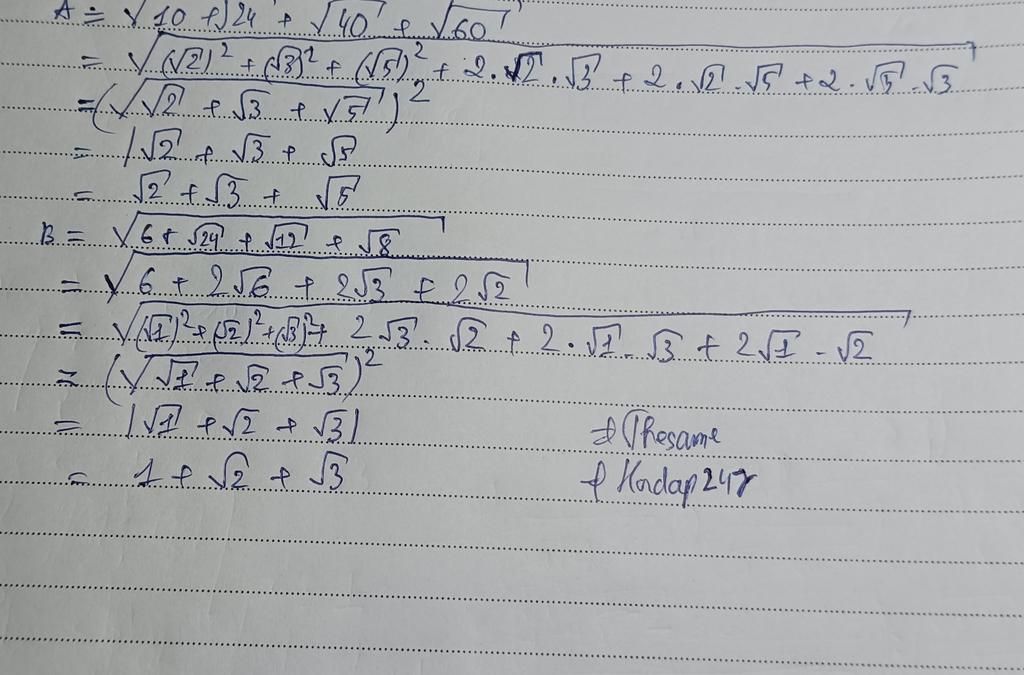 A = √10 + √24 + √40 + √60
= √(√2)² + (√3)² + (√5)² + 2.√2.√3 + 2.√2.√5 + 2.√5.√3
= (√√2 + √3 + √5)²
= |√2 + √3 + √5
= √2 + √3 + √5
B = √6 + √24 + √12 + √8
= √6 + 2√6 + 2√3 + 2√2
= √(√1)² + (√2)² + (√3)² + 2√3.√2 + 2.√1.√3 + 2√1.√2
= (√√1 + √2 + √3)²
= |√1 + √2 + √3|
= 1 + √2 + √3
+ Thesame
+ Hoidap247